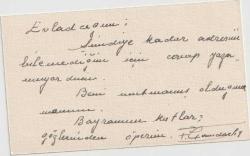 Evladcığım;
Şimdiye kadar adresini
bilemediğim için cevap yaza-
mıyordum.
Beni unutmamış olduğuna
Bayramını kutlar,
gözlerinden öperim.